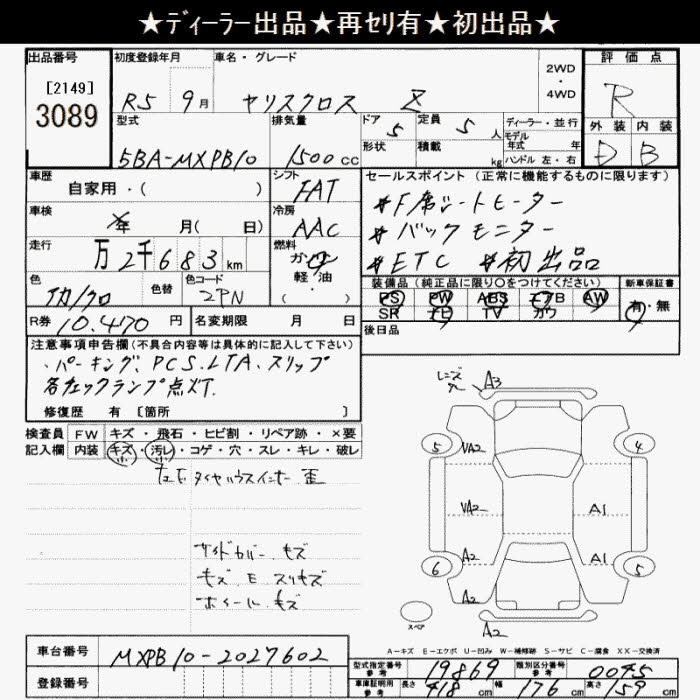 ★ディーラー出品★再セリ有★初出品★
出品番号 初度登録年月 車名・グレード 2WD・4WD 評価点
[2149] 3089 R5 9月 ヤリスクロス Z R
型式 排気量 ドア 5 定員 5人 ディーラー・並行 外装 内装
モデル年式 年
5BA-MXPB10 1500cc 形状 積載 kg ハンドル 左・右 D B
車歴 自家用・( ) シフト FAT セールスポイント(正常に機能するものに限ります)
#F席シートヒーター
車検 年 月( 日) 冷房 AAC #バックモニター
走行 万2千683km 燃料 ガソリン・軽油・( ) #ETC #初出品
色 色替 色コード 2PN 装備品(純正品に限り○をつけてください) 新車保証書
PS PW ABS エアB AW 有・無
SR ナビ TV カワ
R券 10.470円 名変期限 月 日 後日品
注意事項申告欄(不具合内容等は具体的に記入して下さい)
・パーキング、PCS.LTA.スリップ
各チェックランプ点灯.
修復歴 有 [箇所 ]
検査員 FW キズ・飛石・ヒビ割・リペア跡・×要
記入欄 内装 キズ・汚レ・コゲ・穴・スレ・キレ・破レ
タイヤハウスインナー 歪
サイドカバー.キズ
キズ.E.スリキズ
ホイール.キズ
A3
5 VA2 4
VA2 A1
A2 A1
6 5
A2
スペア A2
A-キズ E-エクボ U-凹み W-補修跡 S-サビ C-腐食 XX-交換済
車台番号 MXPB10-2027602 型式指定番号 参考 19869 類別区分番号 参考 0045
登録番号 車庫証明用 参考 長さ 418cm 幅 176cm 高さ 159cm